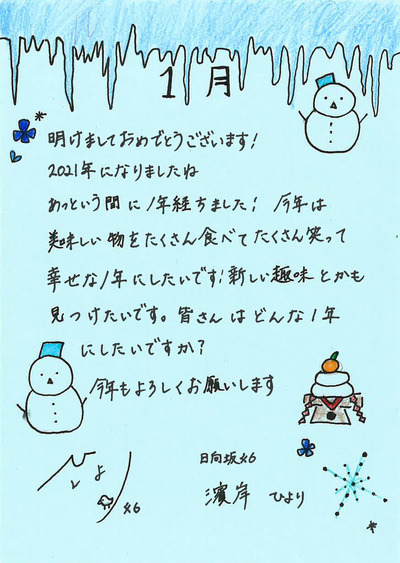 1月
明けましておめでとうございます!
2021年になりましたね
あっという間に1年経ちました! 今年は
美味しい物をたくさん食べてたくさん笑って
幸せな1年にしたいです!新しい趣味とかも
見つけたいです。皆さんはどんな1年
にしたいですか?
今年もよろしくお願いします
ひよ
46
日向坂46
濱岸 ひより